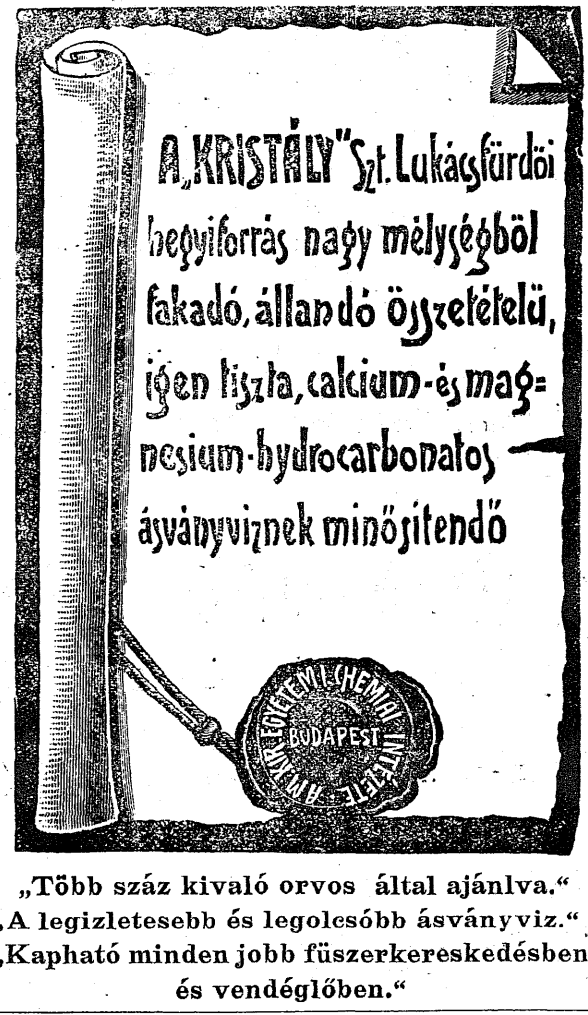 A „KRISTÁLY" Szt. Lukácsfürdöi
hegyiforrás nagy mélységböl
fakadó, állandó összetételü,
igen tiszta, calcium-és mag=
nesium-hydrocarbonatos
ásványviznek minősitendő
A M. KIR. EGYETEM I. CHEMIAI INTÉZETE
BUDAPEST
„Több száz kivaló orvos által ajánlva.“
„A legizletesebb és legolcsóbb ásványviz.“
„Kapható minden jobb füszerkereskedésben
és vendéglőben.“